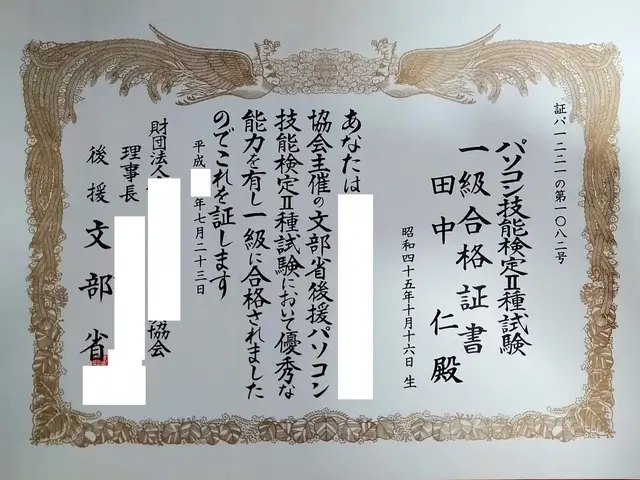 証パ一二二一の第一〇八二号
パソコン技能検定Ⅱ種試験
一級合格証書
田中仁殿
昭和四十五年十月十六日生
あなたは
協会主催の文部省後援パソコン
技能検定Ⅱ種試験において優秀な
能力を有し一級に合格されました
のでこれを証します
平成 年七月二十三日
財団法人 協会
理事長
後援 文部省